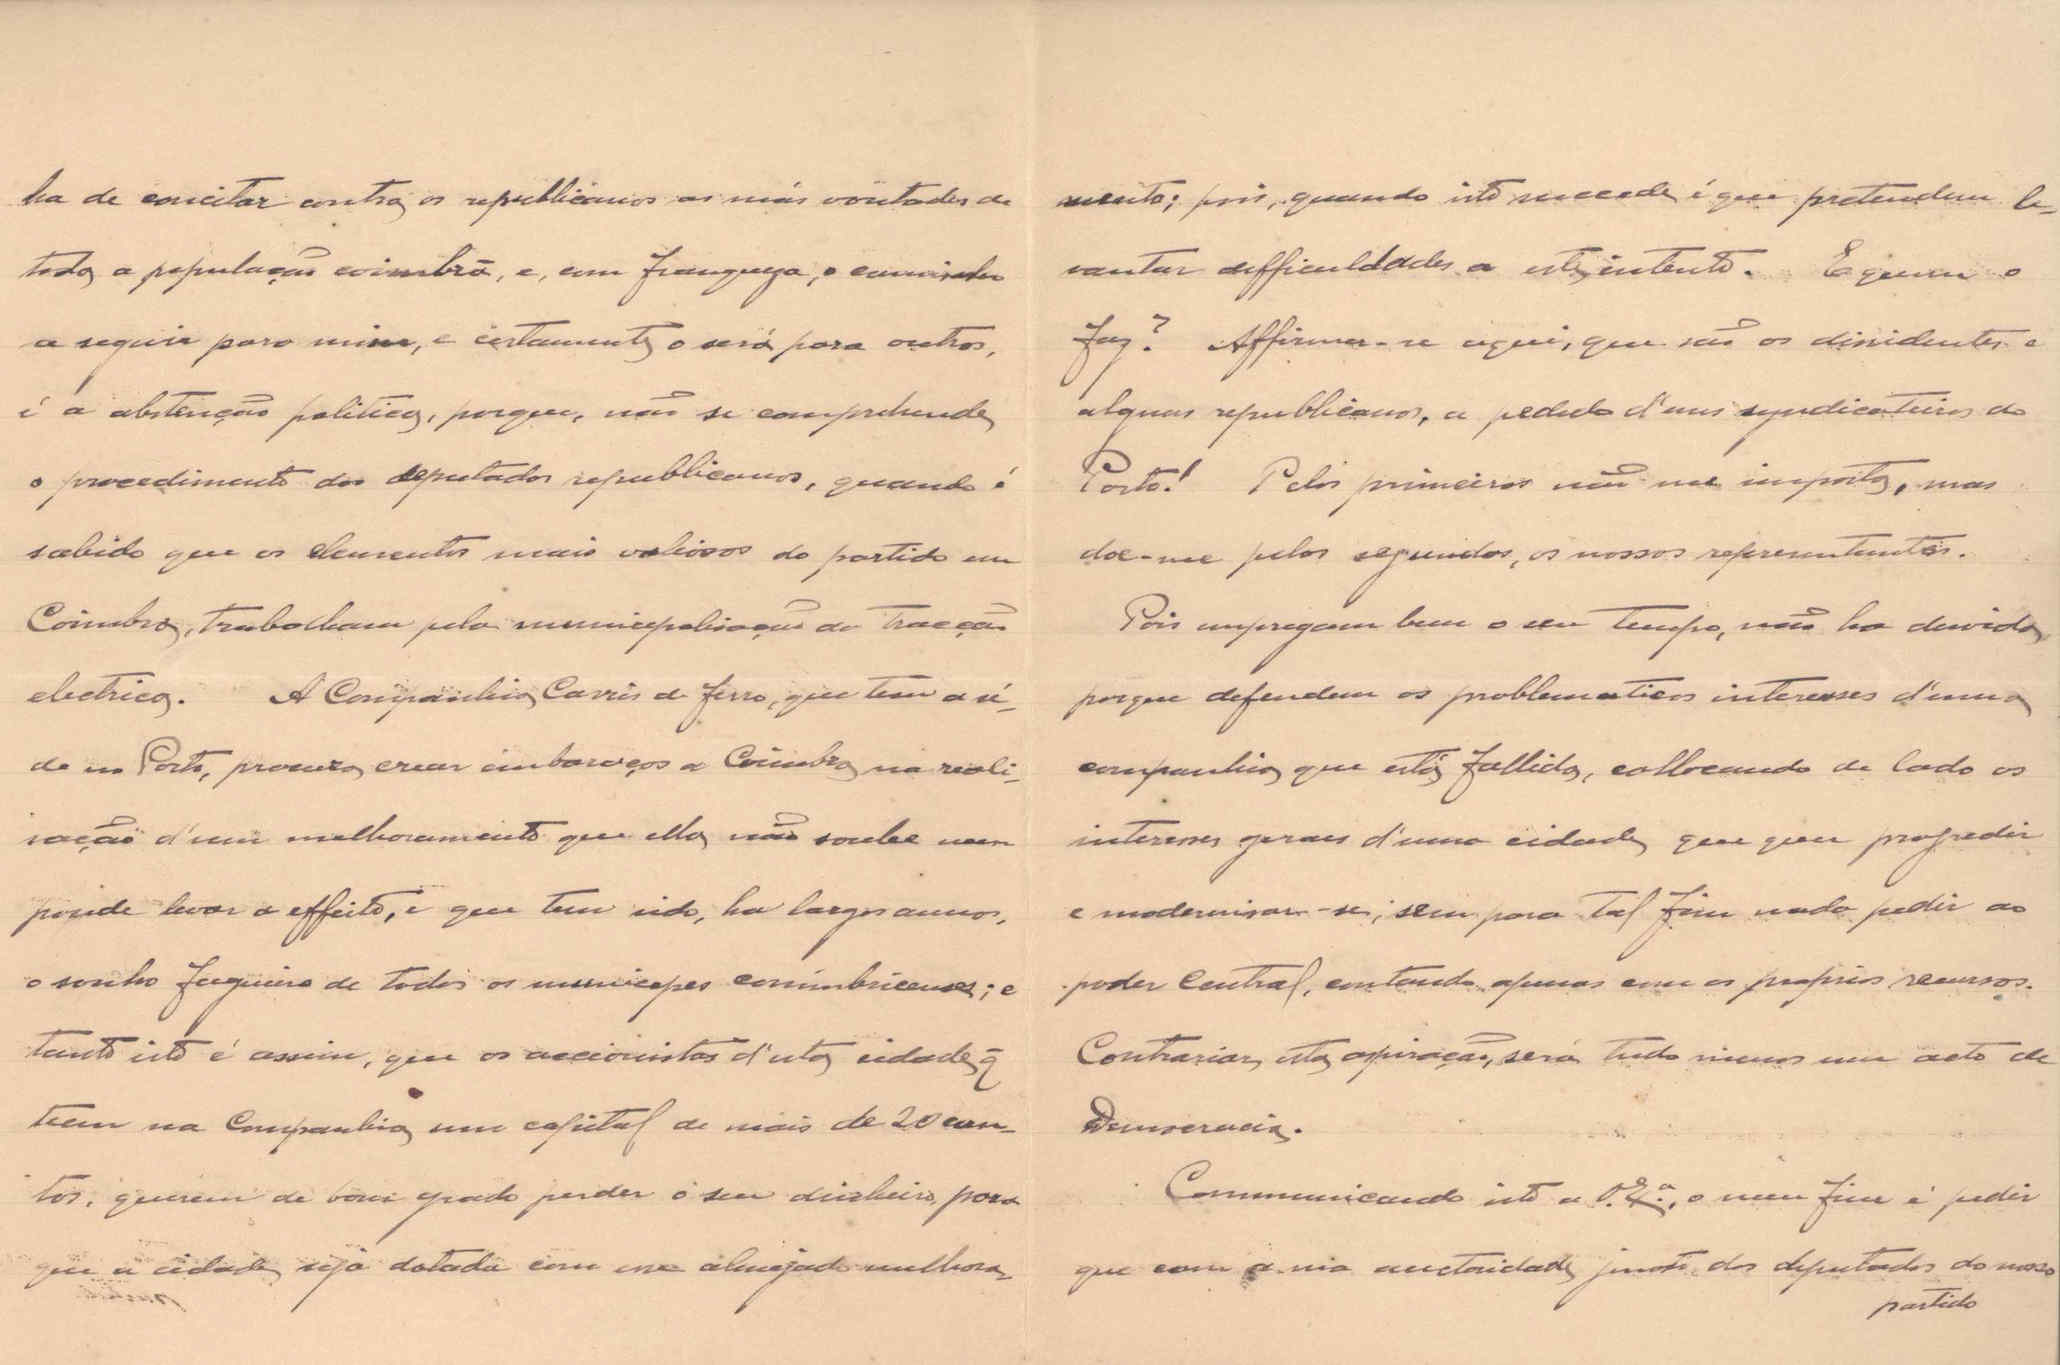 ha de concitar contra os republicanos as más vontades de
toda a população coimbrã, e, com franqueza, o caminho
a seguir para mim, e certamente o será para outros,
é a abstenção politica, porque, não se comprehende
o procedimento dos deputados republicanos, quando é
sabido que os elementos mais valiosos do partido em
Coimbra, trabalham pela municipalisação da tracção
electrica. A Companhia Carris de ferro, que tem a sé-
de no Porto, procura crear embaraços a Coimbra na reali-
sação d'um melhoramento que ella não soube nem
poude levar a effeito, e que tem sido, ha largos annos,
o sonho fagueiro de todos os municipes conimbricenses; e
tanto isto é assim, que os accionistas d'esta cidade q̃
teem na Companhia um capital de mais de 20 con-
tos, querem de bom grado perder o seu dinheiro, para
que a cidade seja dotada com esse almejado melhora-
mento; pois, quando isto succede é que pretendem le-
vantar difficuldades a este intento. E quem o
faz? Affirma-se aqui, que são os dissidentes e
alguns republicanos, a pedido d'uns syndicateiros do
Porto! Pelos primeiros não me importa, mas
doe-me pelos segundos, os nossos representantes.
Pois empregam bem o seu tempo, não ha duvida,
porque defendem os problematicos interesses d'uma
companhia que está fallida, collocando de lado os
interesses geraes d'uma cidade que quer progredir
e modernisar-se, sem para tal fim nada pedir ao
poder Central, contando apenas com os proprios recursos.
Contrariar esta aspiração, será tudo menos um acto de
Democracia.
Communicando isto a V. Ex.ª, o meu fim é pedir
que com a sua auctoridade junto dos deputados do nosso
partido